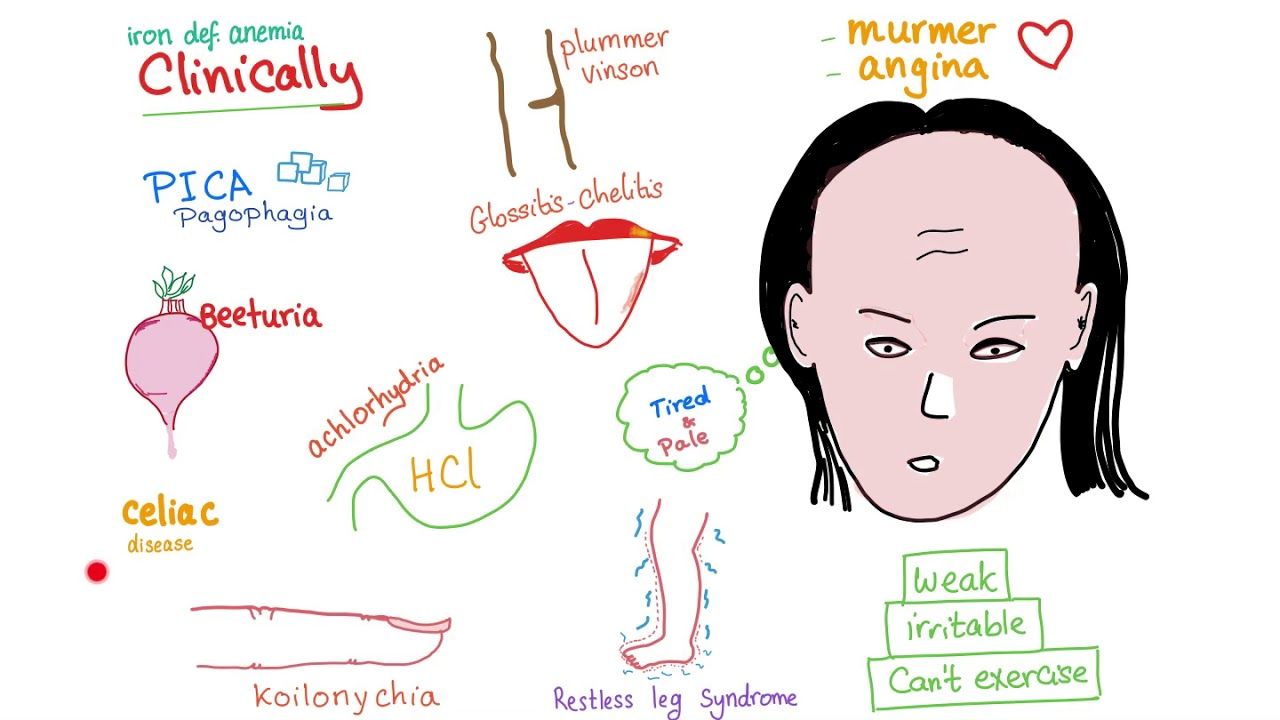 iron def. anemia
Clinically
PICA
Pagophagia
Beeturia
achlorhydria
HCl
celiac
disease
Koilonychia
plummer
vinson
Glossitis-Chelitis
Tired
&
Pale
Restless leg Syndrome
- murmer
- angina
weak
irritable
Can't exercise